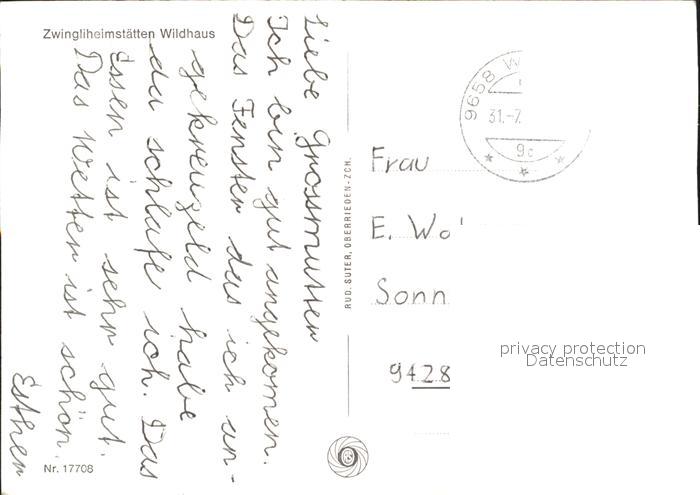 Zwingliheimstätten Wildhaus
Liebe Grossmutter
Ich bin gut angekomen.
Das Fenster das ich an-
gekreuzeld habe
da schlafe ich. Das
Essen ist sehr gut.
Das Wetter ist schön.
Esther
Nr. 17708
RUD. SUTER, OBERRIEDEN-ZCH.
9658 W
31.-7.
9c
Frau
E. Wo
Sonn
9428
privacy protection
Datenschutz